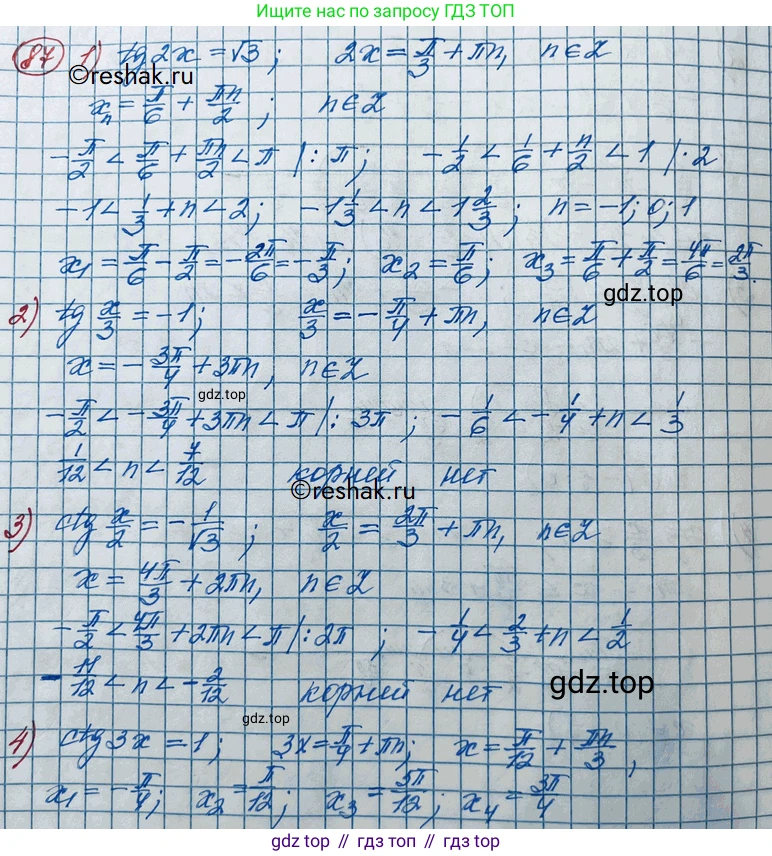 Ищите нас по запросу ГДЗ ТОП
87 1) tg 2x = √3; 2x = π/3 + πn, n∈Z
©reshak.ru
xₙ = π/6 + πn/2; n∈Z
-π/2 < π/6 + πn/2 < π |:π; -1/2 < 1/6 + n/2 < 1 |·2
-1 < 1/3 + n < 2; -1 1/3 < n < 1 2/3; n = -1; 0; 1
x₁ = π/6 - π/2 = -2π/6 = -π/3; x₂ = π/6; x₃ = π/6 + π/2 = 4π/6 = 2π/3.
gdz.top
2) tg x/3 = -1; x/3 = -π/4 + πn, n∈Z
x = -3π/4 + 3πn, n∈Z
gdz.top
-π/2 < -3π/4 + 3πn < π |: 3π; -1/6 < -1/4 + n < 1/3
1/12 < n < 7/12 корней нет
©reshak.ru
3) ctg x/2 = -1/√3; x/2 = 2π/3 + πn, n∈Z
x = 4π/3 + 2πn, n∈Z
-π/2 < 4π/3 + 2πn < π |: 2π; -1/4 < 2/3 + n < 1/2
-11/12 < n < -2/12 корней нет
gdz.top
gdz.top
4) ctg 3x = 1; 3x = π/4 + πn; x = π/12 + πn/3,
x₁ = -π/4; x₂ = π/12; x₃ = 5π/12; x₄ = 3π/4
gdz top // гдз топ // gdz top // гдз топ